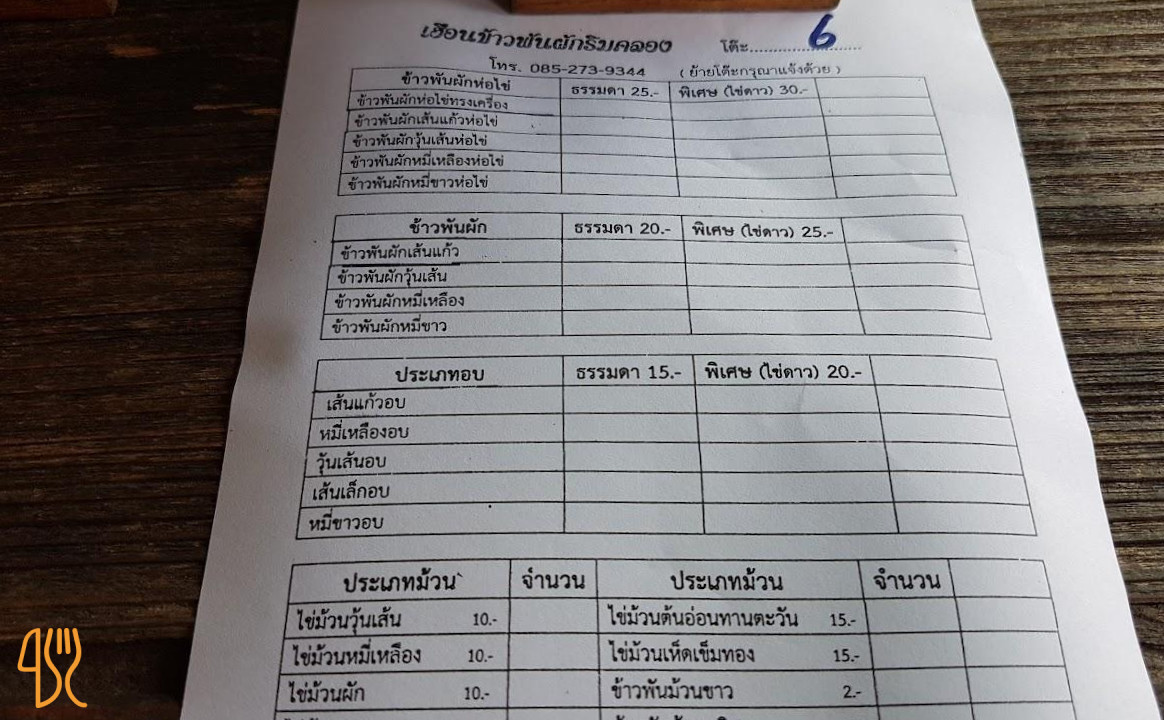 เฮือนข้าวพันผักริมคลอง โต๊ะ.......................6
โทร. 085-273-9344 ( ย้ายโต๊ะกรุณาแจ้งด้วย )
ข้าวพันผักห่อไข่ ธรรมดา 25.- พิเศษ (ไข่ดาว) 30.-
ข้าวพันผักห่อไข่ทรงเครื่อง
ข้าวพันผักเส้นแก้วห่อไข่
ข้าวพันผักวุ้นเส้นห่อไข่
ข้าวพันผักหมี่เหลืองห่อไข่
ข้าวพันผักหมี่ขาวห่อไข่
ข้าวพันผัก ธรรมดา 20.- พิเศษ (ไข่ดาว) 25.-
ข้าวพันผักเส้นแก้ว
ข้าวพันผักวุ้นเส้น
ข้าวพันผักหมี่เหลือง
ข้าวพันผักหมี่ขาว
ประเภทอบ ธรรมดา 15.- พิเศษ (ไข่ดาว) 20.-
เส้นแก้วอบ
หมี่เหลืองอบ
วุ้นเส้นอบ
เส้นเล็กอบ
หมี่ขาวอบ
ประเภทม้วน จำนวน ประเภทม้วน จำนวน
ไข่ม้วนวุ้นเส้น 10.- ไข่ม้วนต้นอ่อนทานตะวัน 15.-
ไข่ม้วนหมี่เหลือง 10.- ไข่ม้วนเห็ดเข็มทอง 15.-
ไข่ม้วนผัก 10.- ข้าวพันม้วนขาว 2.-